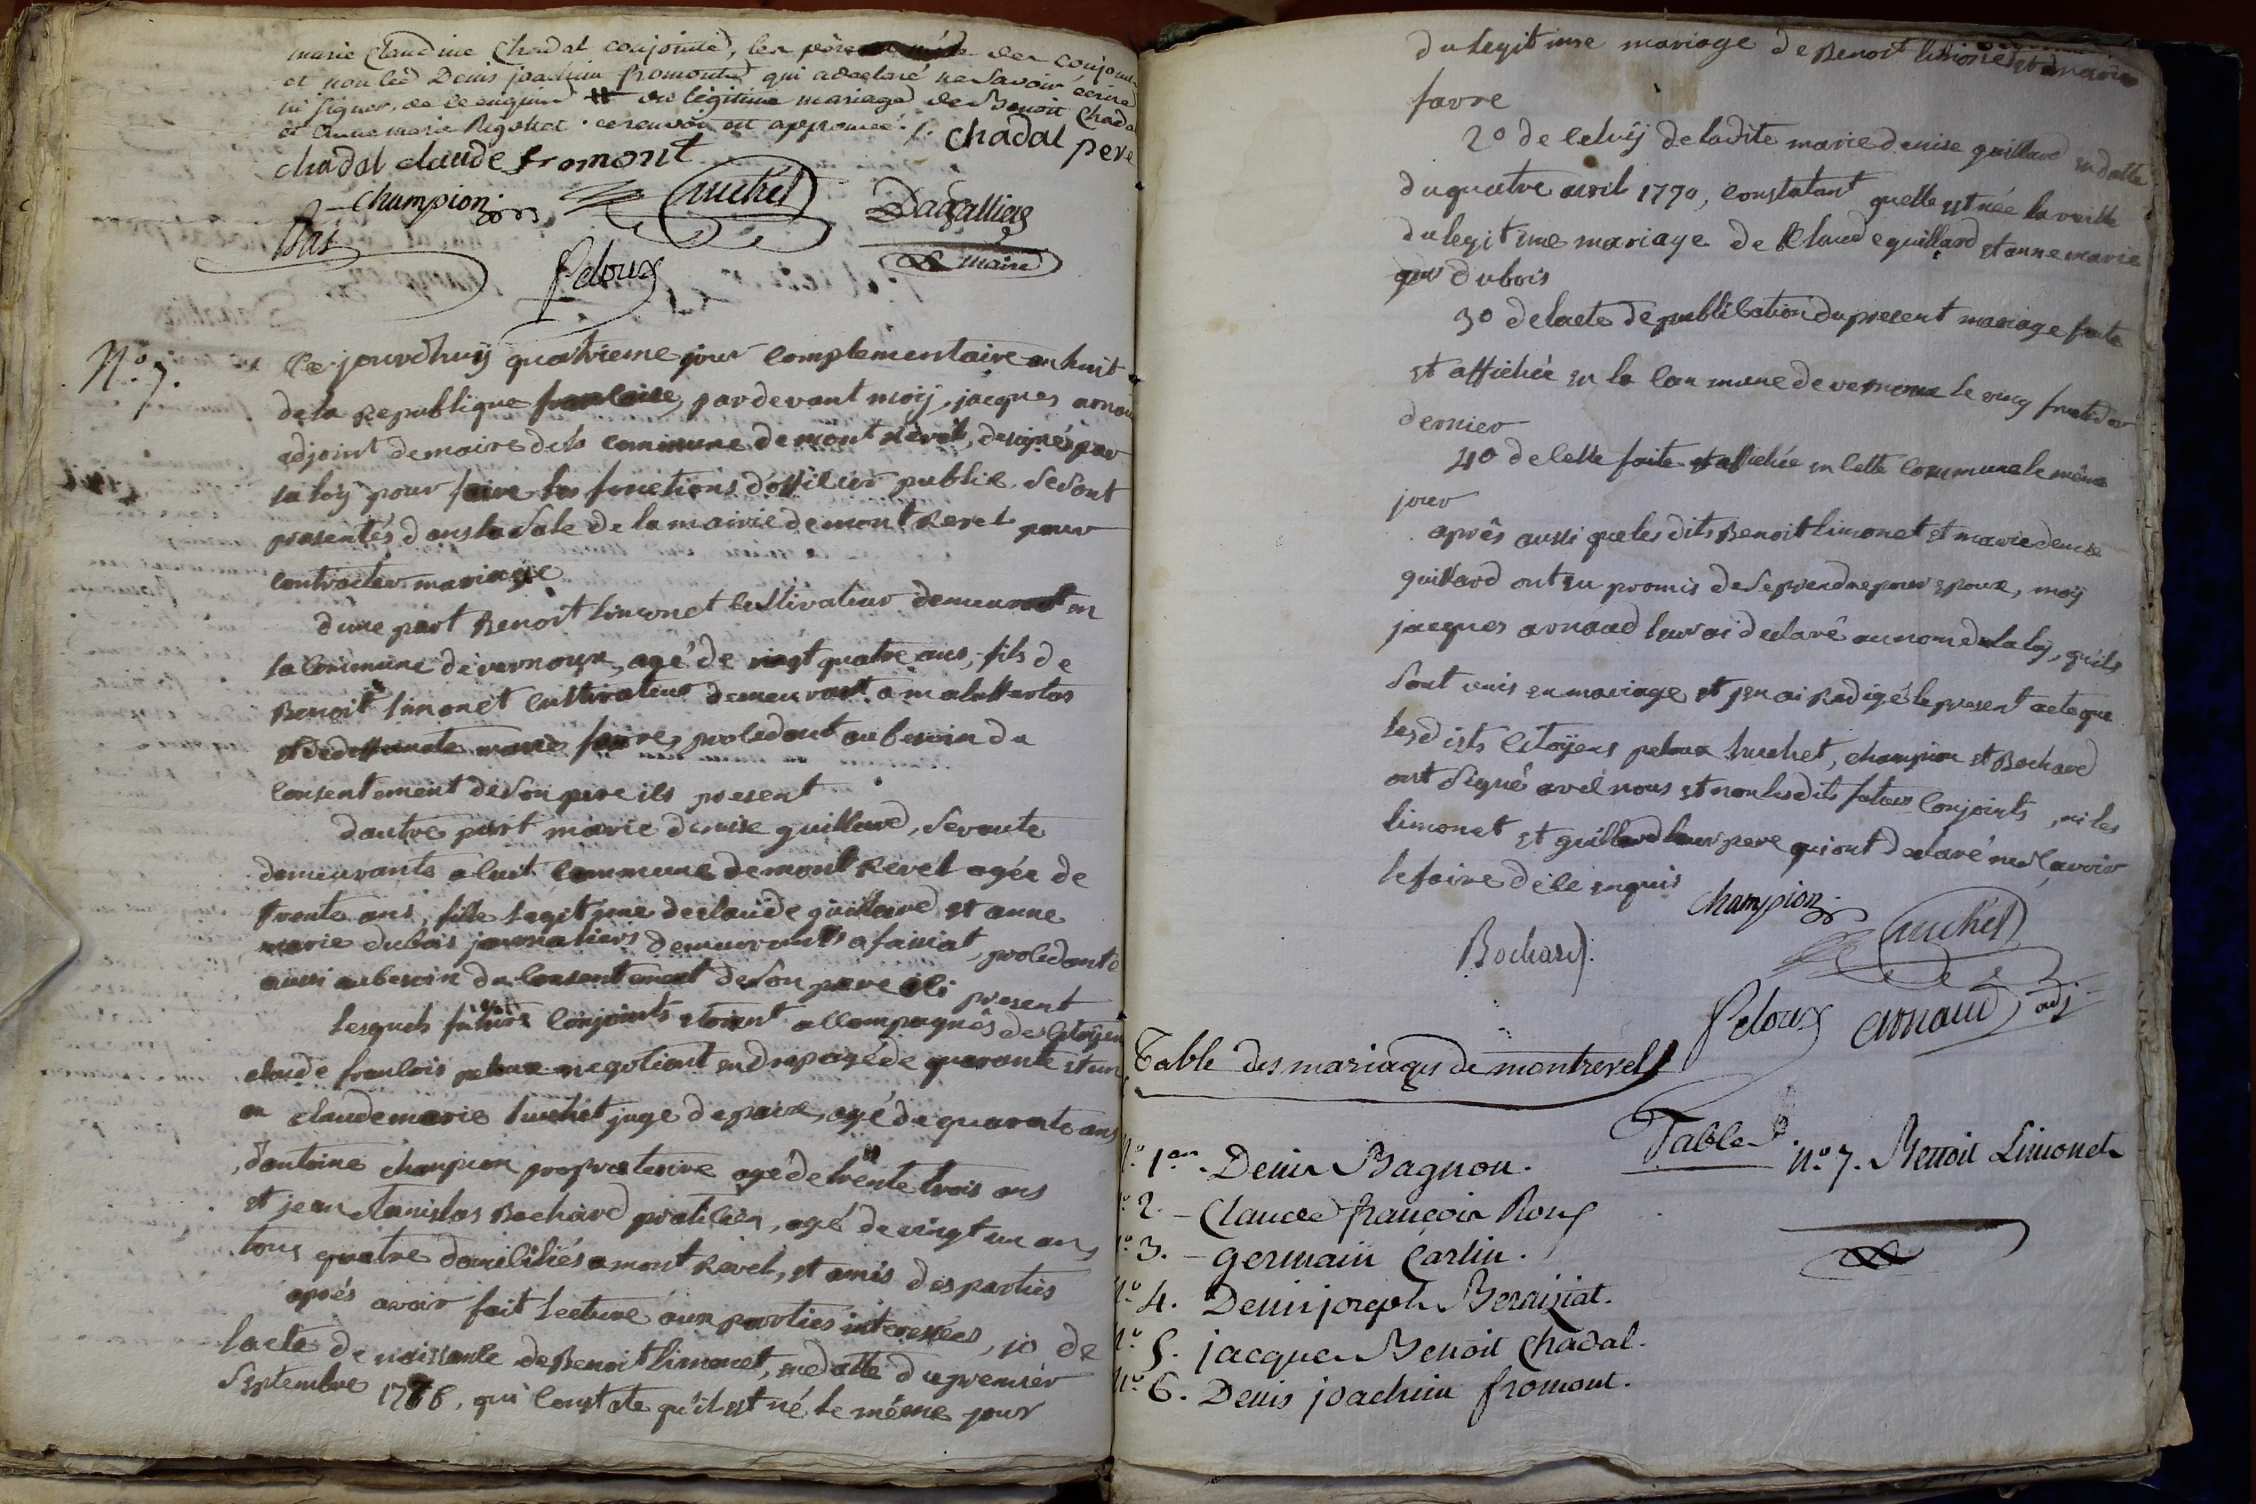 marie Claudine Chadal conjointe, les père des conjoints
et non led Denis joachim fromont qui a declaré ne Savoir ecrire
ni Signer, de ce enquis # du légitime mariage de Benoit Chadal
et anne marie . ce renvoi est approuvé ./. chadal pere
chadal claude fromont
champion luchet Dagallier
Bas peloux maire
N.º 7. Ce jourdhuij quatrieme jour complementaire an huit
de la Republique francaise, pardevant moij, jacques arnaud
adjoint de maire de la commune de mont Revel, designé par
la loij pour faire les fonctions dofficier public Se Sont
presentés dans la Sale de la mairie de mont Revel pour
contracter mariage
dune part Benoit limonet cultivateur demeurant en
la commune de vernoux, agé de vingt quatre ans, fils de
Benoit limonet cultivateur demeurant a malaffertas
et de deffuncte marie favre, procedant au besoin du
consentement de Son pere ici present
dautre part marie denise guillard, Servante
demeurante a cuet commune de mont Revel agée de
trente ans, fille legitime de claude guillard et anne
marie dubois journaliers demeurants a faissiat, procedante
aussi au besoin du consentement de Son pere ici present
lesquels futurs conjoints etoient accompagnés des citoijens
claude francois peloux negotiant en drap agé de quarante et un
an claude marie luchet juge de paix, agé de quarante ans
dantoine champion proprietaire agé de trente trois ans
et jean Stanislas Bochard praticien, agé de vingt un ans
tous quatre domiciliés a mont Revel, et amis des parties
après avoir fait lecture aux parties interessées, 1o de
lacte de naissance de Benoit limonet, en datte du premier
Septembre 1776, qui constate qu'il est né le même jour
du legitime mariage de Benoit limonet et marie
favre
2o de celuij de ladite marie denise guillard en datte
du quatre avril 1770, constatant quelle est née la veille
du legitime mariage de Claude guillard et anne marie
dubois
3o de lacte de publication du present mariage faite
et affichée en la commune de vernoux le cinq fructidor
dernier
4o de celle faite et affichée en cette commune le même
jour
après aussi que lesdits Benoit limonet et marie denise
guillard ont eu promis de Se prendre pour epoux, moij
jacques arnaud leur ai declaré au nom de la loij, qu'ils
Sont unis en mariage et j'en ai Redigé le present acte que
lesdits citoijens peloux luchet, champion et Bochard
ont Signé avec nous et non lesdits futurs conjoints, ni les
limonet et guillard leur pere qui ont declaré ne Scavoir
le faire de ce enquis champion
Bochard. luchet
peloux arnaud adj
Table des mariages de montrevel
Table
Nº. 1er. Denis Bagnon.
Nº. 2. – Claude françois Roux
Nº. 3. – germain Carlin.
Nº. 4. Denis joseph Beraiziat.
Nº. 5. jacques Benoit Chadal.
Nº. 6. Denis joachim fromont.
Nº. 7. Benoit Limonet